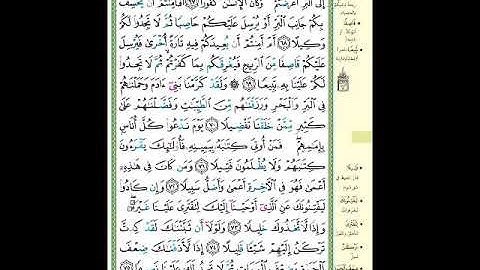 إِلَى ٱلْبَرِّ أَعْرَضْتُمْ وَكَانَ ٱلْإِنسَٰنُ كَفُورًا ۝٦٧ أَفَأَمِنتُمْ أَن يَخْسِفَ
بِكُمْ جَانِبَ ٱلْبَرِّ أَوْ يُرْسِلَ عَلَيْكُمْ حَاصِبًا ثُمَّ لَا تَجِدُوا۟ لَكُمْ
وَكِيلًا ۝٦٨ أَمْ أَمِنتُمْ أَن يُعِيدَكُمْ فِيهِ تَارَةً أُخْرَىٰ فَيُرْسِلَ
عَلَيْكُمْ قَاصِفًا مِّنَ ٱلرِّيحِ فَيُغْرِقَكُم بِمَا كَفَرْتُمْ ثُمَّ لَا تَجِدُوا۟
لَكُمْ عَلَيْنَا بِهِۦ تَبِيعًا ۝٦٩ وَلَقَدْ كَرَّمْنَا بَنِىٓ ءَادَمَ وَحَمَلْنَٰهُمْ
فِى ٱلْبَرِّ وَٱلْبَحْرِ وَرَزَقْنَٰهُم مِّنَ ٱلطَّيِّبَٰتِ وَفَضَّلْنَٰهُمْ عَلَىٰ
كَثِيرٍ مِّمَّنْ خَلَقْنَا تَفْضِيلًا ۝٧٠ يَوْمَ نَدْعُوا۟ كُلَّ أُنَاسٍۭ
بِإِمَٰمِهِمْ فَمَنْ أُوتِىَ كِتَٰبَهُۥ بِيَمِينِهِۦ فَأُو۟لَٰٓئِكَ يَقْرَءُونَ
كِتَٰبَهُمْ وَلَا يُظْلَمُونَ فَتِيلًا ۝٧١ وَمَن كَانَ فِى هَٰذِهِۦٓ
أَعْمَىٰ فَهُوَ فِى ٱلْءَاخِرَةِ أَعْمَىٰ وَأَضَلُّ سَبِيلًا ۝٧٢ وَإِن كَادُوا۟
لَيَفْتِنُونَكَ عَنِ ٱلَّذِىٓ أَوْحَيْنَآ إِلَيْكَ لِتَفْتَرِىَ عَلَيْنَا غَيْرَهُۥ
وَإِذًا لَّٱتَّخَذُوكَ خَلِيلًا ۝٧٣ وَلَوْلَآ أَن ثَبَّتْنَٰكَ لَقَدْ كِدتَّ
تَرْكَنُ إِلَيْهِمْ شَيْـًٔا قَلِيلًا ۝٧٤ إِذًا لَّأَذَقْنَٰكَ ضِعْفَ